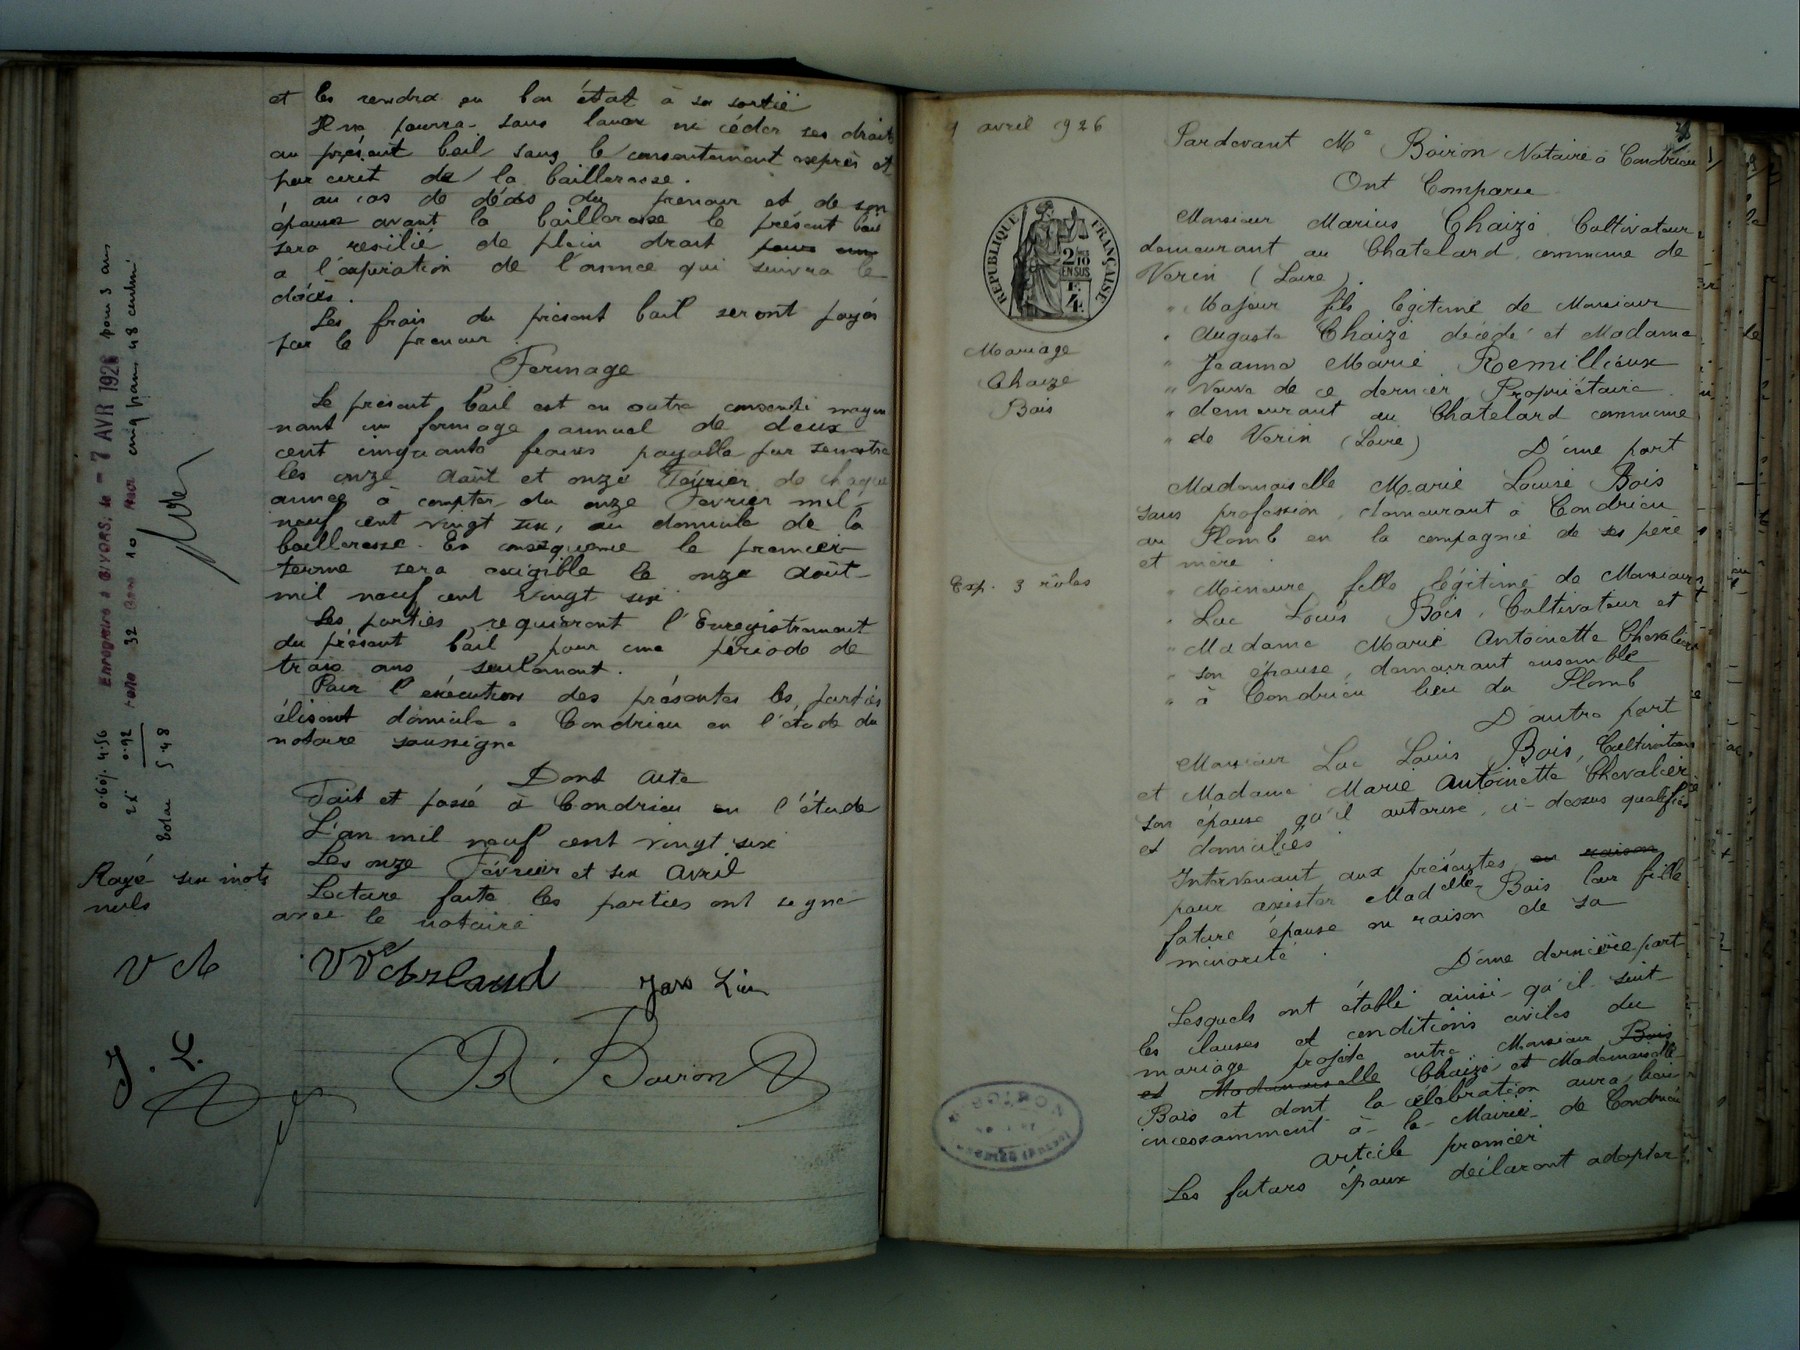 et les rendra en bon état à sa sortie
Il ne pourra sans louer ni céder ses droits
au présent bail sans le consentement exprès et
par ecrit de la bailleresse.
au cas de décès du preneur et de son
épouse avant la bailleresse le présent bail
sera resilié de plein droit
a l'expiration de l'année qui suivra le
décès.
Les frais du présent bail seront payés
par le preneur.
Fermage
Le présent bail est en outre consenti moyen
nant un fermage annuel de deux
cent cinquante francs payable par semestre
les onze Août et onze Février de chaque
année à compter du onze Fevrier mil
neuf cent vingt six, au domicile de la
bailleresse. En conséquence le premier
terme sera exigible le onze Août
mil neuf cent vingt six
Les parties requierent l'Enregistrement
du présent bail pour une période de
trois ans seulement.
Pour l'exécution des présentes les parties
élisent domicile à Condrieu en l'étude du
notaire soussigné
Dont acte
Fait et passé à Condrieu en l'étude
L'an mil neuf cent vingt six
Les onze Février et six Avril
Lecture faite les parties ont signé
avec le notaire
Enregistré à GIVORS, le - 7 AVR 1926 pour 3 ans
Folio 32 Case 10 Reçu cinq francs 48 centimes
0.60% 4.56
2% 0.92
Total 5.48
Rayé six mots
nuls
J. L.
Boiron
9 avril 1926
Mariage
Chaize
Bois
Exp. 3 rôles
RÉPUBLIQUE FRANÇAISE
2/10
EN SUS
F.
4.
Pardevant Me Boiron Notaire à Condrieu
Ont Comparu
Monsieur Marius Chaize, Cultivateur
demeurant au Chatelard, commune de
Verin (Loire)
" Majeur fils légitime de Monsieur
" Auguste Chaize décédé et Madame
" Jeanne Marie Remillieux
" veuve de ce dernier Propriétaire
" demeurant au Chatelard commune
" de Verin (Loire)
D'une part
Mademoiselle Marie Louise Bois
sans profession, demeurant à Condrieu
au Plomb en la compagnie de ses pere
et mère
" Mineure fille légitime de Monsieur
" Luc Louis Bois, Cultivateur et
" Madame Marie Antoinette Chevalier
" son épouse, demeurant ensemble
" à Condrieu lieu du Plomb
D'autre part
Monsieur Luc Louis Bois, Cultivateur
et Madame Marie Antoinette Chevalier
son épouse qu'il autorise, ci-dessus qualifiés
et domiciliés
Intervenant aux présentes en raison
pour assister Madelle Bois leur fille
future épouse en raison de sa
minorité.
D'une dernière part
Lesquels ont établi ainsi qu'il suit
les clauses et conditions civiles du
mariage projeté entre Monsieur Bois
et Mademoiselle Chaize et Mademoiselle
Bois et dont la célébration aura lieu
incessamment à la Mairie de Condrieu
article premier
Les futurs époux déclarent adopter